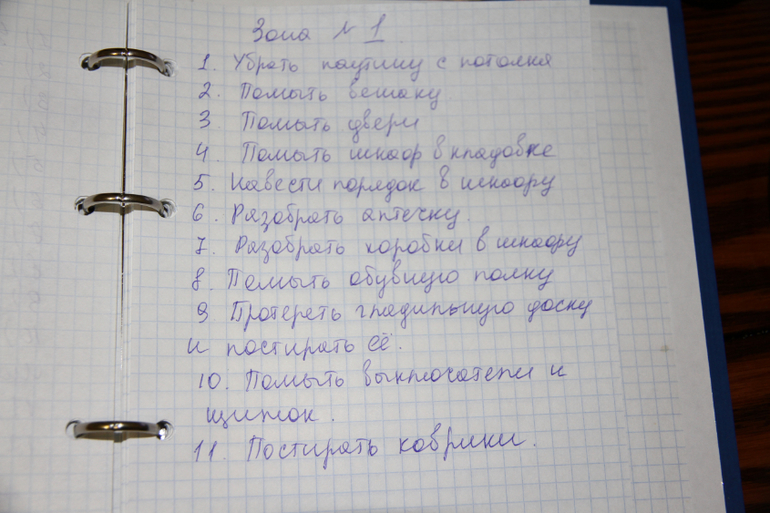 Зона № 1.
1. Убрать паутину с потолка
2. Помыть вешаку
3 Помыть двери
4 Помыть шкаф в кладовке
5. Навести порядок в шкафу
6. Разобрать аптечку.
7. Разобрать коробки в шкафу
8. Помыть обувную полку
9 Протереть гладильную доску
и постирать её.
10. Помыть выключатели и
щиток.
11. Постирать коврики.